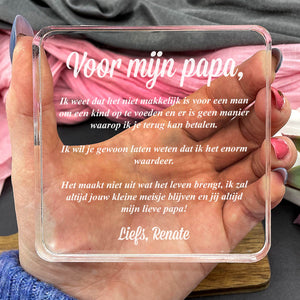 Voor mijn papa,
Ik weet dat het niet makkelijk is voor een man
om een kind op te voeden en er is geen manier
waarop ik je terug kan betalen.
Ik wil je gewoon laten weten dat ik het enorm
waardeer.
Het maakt niet uit wat het leven brengt, ik zal
altijd jouw kleine meisje blijven en jij altijd
mijn lieve papa!
Liefs, Renate